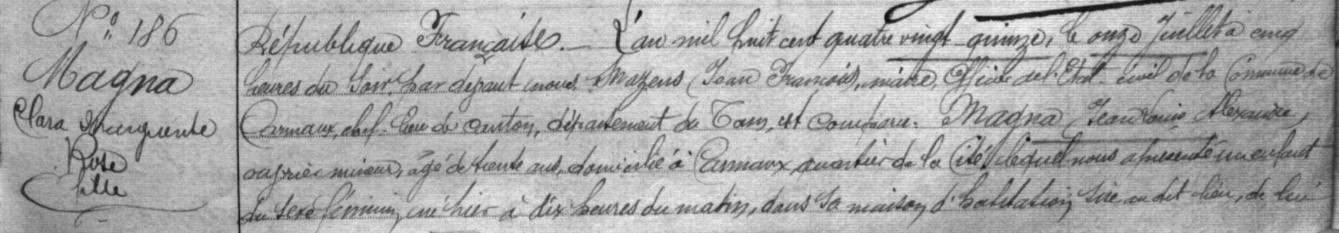 N° 186
Magna
Clara Marguerite
Rose
fille
République Française. _ L'an mil huit cent quatre vingt quinze, le onze Juillet à cinq
heures du soir, par devant nous Mazens (Jean François), maire, Officier de l'Etat civil de la Commune de
Carmaux, chef-lieu de canton, département du Tarn, est comparu: Magna (Jean Louis Alexandre),
ouvrier mineur, âgé de trente ans, domicilié à Carmaux, quartier de la Cité, lequel nous a présenté un enfant
du sexe féminin, né hier à dix heures du matin, dans sa maison d'habitation, sise au dit lieu, de lui